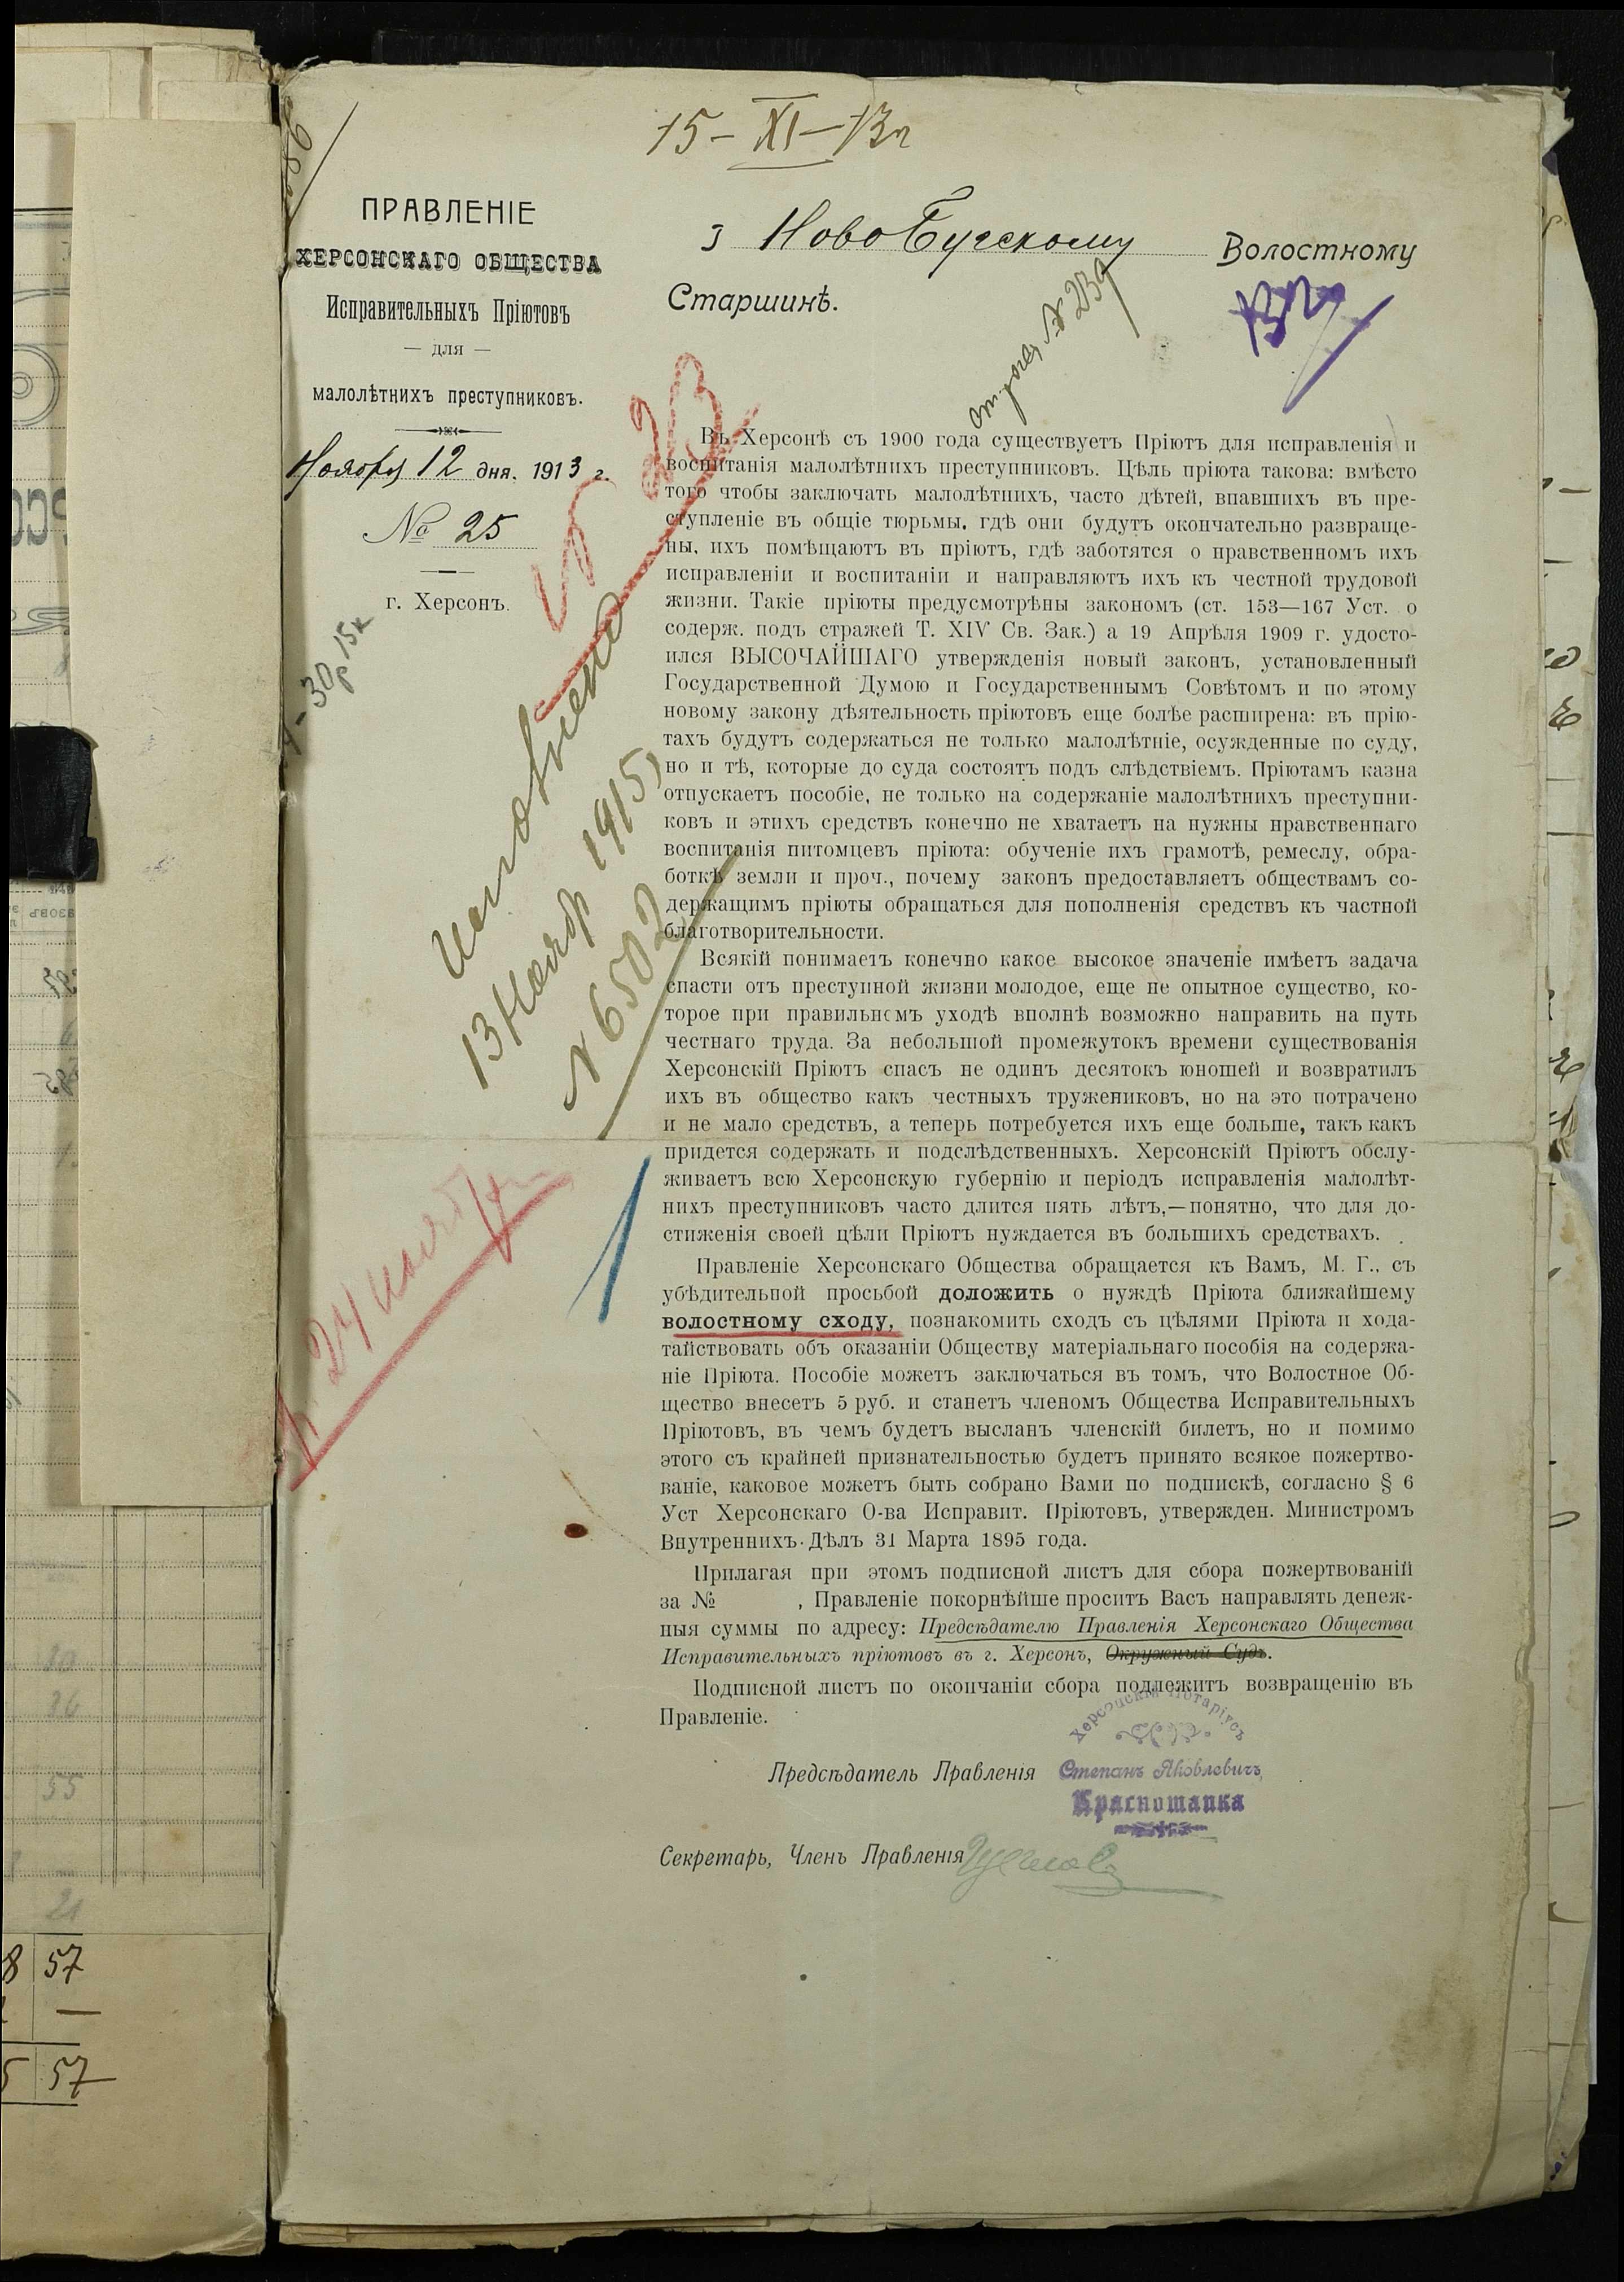 15-XI-13г
ПРАВЛЕНІЕ
ХЕРСОНСКАГО ОБЩЕСТВА
Исправительныхъ Пріютовъ
— для —
малолѣтнихъ преступниковъ.
Ноября 12 дня. 1913 г.
№ 25
г. Херсонъ.
НовоБугскому Волостному
Старшинѣ.
№ 239
30р 15к
Исполнено
13 Ноябр 1915
№ 6502
24 нояб
Въ Херсонѣ съ 1900 года существуетъ Пріютъ для исправленія и
воспитанія малолѣтнихъ преступниковъ. Цѣль пріюта такова: вмѣсто
того чтобы заключать малолѣтнихъ, часто дѣтей, впавшихъ въ пре-
ступленіе въ общіе тюрьмы, гдѣ они будутъ окончательно развраще-
ны, ихъ помѣщаютъ въ пріютъ, гдѣ заботятся о нравственномъ ихъ
исправленіи и воспитаніи и направляютъ ихъ къ честной трудовой
жизни. Такіе пріюты предусмотрѣны закономъ (ст. 153—167 Уст. о
содерж. подъ стражей Т. XIV Св. Зак.) а 19 Апрѣля 1909 г. удосто-
ился ВЫСОЧАЙШАГО утвержденія новый законъ, установленный
Государственной Думою и Государственнымъ Совѣтомъ и по этому
новому закону дѣятельность пріютовъ еще болѣе расширена: въ прію-
тахъ будутъ содержаться не только малолѣтніе, осужденные по суду,
но и тѣ, которые до суда состоятъ подъ слѣдствіемъ. Пріютамъ казна
отпускаетъ пособіе, не только на содержаніе малолѣтнихъ преступни-
ковъ и этихъ средствъ конечно не хватаетъ на нужны нравственнаго
воспитанія питомцевъ пріюта: обученіе ихъ грамотѣ, ремеслу, обра-
боткѣ земли и проч., почему законъ предоставляетъ обществамъ со-
держащимъ пріюты обращаться для пополненія средствъ къ частной
благотворительности.
Всякій понимаетъ конечно какое высокое значеніе имѣетъ задача
спасти отъ преступной жизни молодое, еще не опытное существо, ко-
торое при правильномъ уходѣ вполнѣ возможно направить на путь
честнаго труда. За небольшой промежутокъ времени существованія
Херсонскій Пріютъ спасъ не одинъ десятокъ юношей и возвратилъ
ихъ въ общество какъ честныхъ тружениковъ, но на это потрачено
и не мало средствъ, а теперь потребуется ихъ еще больше, такъ какъ
придется содержать и подслѣдственныхъ. Херсонскій Пріютъ обслу-
живаетъ всю Херсонскую губернію и періодъ исправленія малолѣт-
нихъ преступниковъ часто длится пять лѣтъ,—понятно, что для до-
стиженія своей цѣли Пріютъ нуждается въ большихъ средствахъ.
Правленіе Херсонскаго Общества обращается къ Вамъ, М. Г., съ
убѣдительной просьбой доложить о нуждѣ Пріюта ближайшему
волостному сходу, познакомить сходъ съ цѣлями Пріюта и хода-
тайствовать объ оказаніи Обществу матеріальнаго пособія на содержа-
ніе Пріюта. Пособіе можетъ заключаться въ томъ, что Волостное Об-
щество внесетъ 5 руб. и станетъ членомъ Общества Исправительныхъ
Пріютовъ, въ чемъ будетъ высланъ членскій билетъ, но и помимо
этого съ крайней признательностью будетъ принято всякое пожертво-
ваніе, каковое можетъ быть собрано Вами по подпискѣ, согласно § 6
Уст Херсонскаго О-ва Исправит. Пріютовъ, утвержден. Министромъ
Внутреннихъ Дѣлъ 31 Марта 1895 года.
Прилагая при этомъ подписной листъ для сбора пожертвованій
за № , Правленіе покорнѣйше проситъ Васъ направлять денеж-
ныя суммы по адресу: Предсѣдателю Правленія Херсонскаго Общества
Исправительныхъ пріютовъ въ г. Херсонъ, Окружный Судъ.
Подписной листъ по окончаніи сбора подлежитъ возвращенію въ
Правленіе.
Херсонскій Нотаріусъ
Предсѣдатель Правленія Степанъ Яковлевичъ
Краснощапка
Секретарь, Членъ Правленія
8 57
5 57